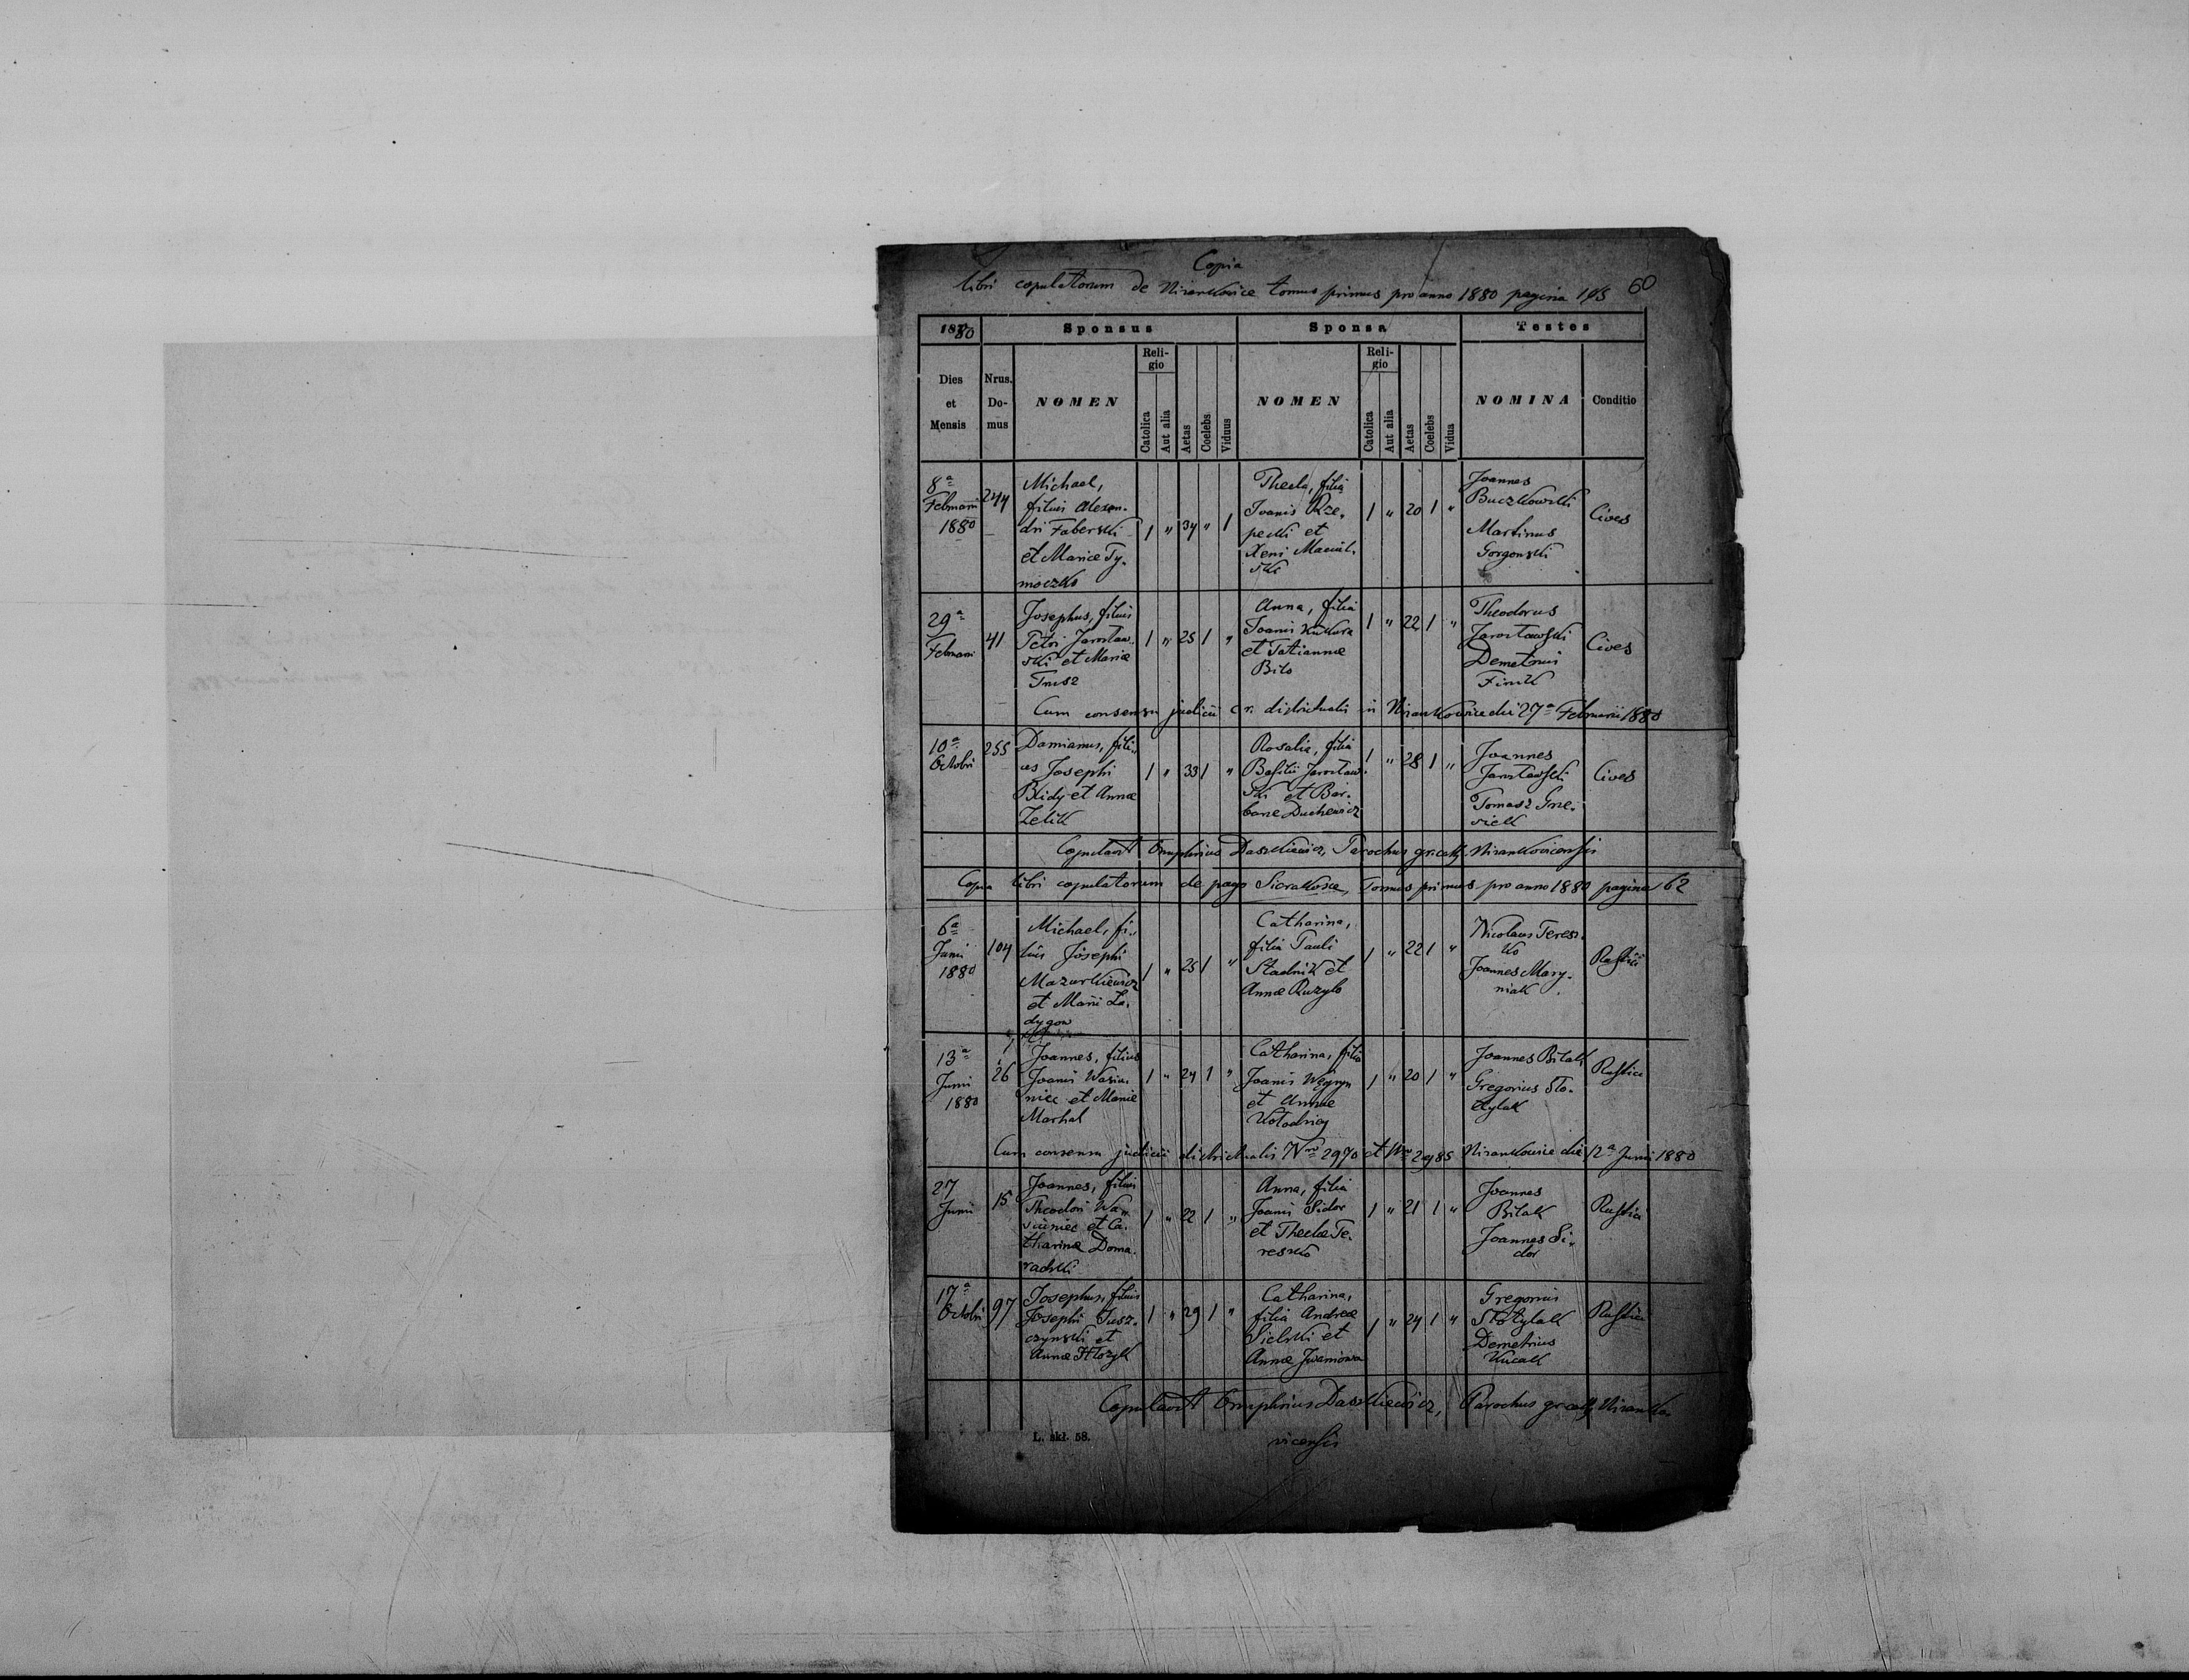 Copia
libri copulatorum de Nizankovice tomus primus pro anno 1880 pagina 60
1880 Sponsus Sponsa Testes
Dies et Mensis
Nrus. Do- mus
NOMEN
Reli- gio
Catolica
Aut alia
Aetas
Coelebs
Viduus
NOMEN
Reli- gio
Catolica
Aut alia
Aetas
Coelebs
Vidua
NOMINA
Conditio
8a
Februarii
1880
244
Michael,
filius Alexan-
dri Faberski
et Mariæ Ty-
moczko
1 " 34 " 1
Thecla, filia
Joanis Rze-
pecki et
1 " 20 1 "
Joannes
Buczkowski
Martinus
Gorgonski
Cives
29a
Februarii
41
Josephus, filius
Petri Jarosław-
ski et Mariæ
Trusz
1 " 25 1 "
Anna, filia
Joanis Kukura
et Tatiannæ
Bilo
1 " 22 1 "
Theodorus
Jarosławski
Demetrius
Cives
Cum consensu judicii c. r. districtualis in Nizankowice die 27a Februarii 1880
10a
Octobri
255
Damianus, fili-
us Josephi
Blidy et Annæ
Zelik
1 " 33 1 "
Rosalia, filia
Basilii Jarosław-
ski et Bar-
baræ Duchewicz
1 " 28 1 "
Joannes
Jarosławski
Tomasz
Cives
Copulavit Onuphrius Daszkiewicz, Parochus gr. cath. Nizankovicensis
Copia libri copulatorum de pago Sierakosce, Tomus primus pro anno 1880 pagina 62
6a
Junii
1880
104
Michael, fi-
lius Josephi
Mazurkiewicz
et Mariæ La-
dygow
1 " 25 1 "
Catharina,
filia Pauli
Stadnik et
Annæ Ruzylo
1 " 22 1 "
Nicolaus Teresz-
ko
Joannes Mary-
niak
Rustici
13a
Junii
1880
26
Joannes, filius
Joanis Wasiu-
niec et Mariæ
Marhal
1 " 24 1 "
Catharina, filia
Joanis Węgryn
et Annæ
Kołodziej
1 " 20 1 "
Joannes Bilak
Gregorius Sto-
tylak
Rustici
Cum consensu judicii districtualis Nro 2970 et Nro 2985 Nizankowice die 12a Junii 1880
27
Junii
15
Joannes, filius
Theodori Wa-
siuniec et Ca-
tharinæ Doma-
radzki
1 " 22 1 "
Anna, filia
Joanis Sidor
et Theclæ Te-
reszko
1 " 21 1 "
Joannes
Bilak
Joannes Si-
dor
Rustici
17a
Octobri
97
Josephus, filius
Josephi Tusz-
czynski et
Annæ Hłozyk
1 " 29 1 "
Catharina,
filia Andreæ
Sielski et
Annæ Iwaniowa
1 " 24 1 "
Gregorius
Stotylak
Demetrius
Kucak
Rustici
Copulavit Onuphrius Daszkiewicz, Parochus gr. cath. Nizanko-
vicensis
L. skł. 58.